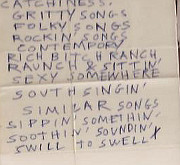 CATCHINESS.
GRITTY SONGS
FOLKY SONGS
ROCKIN' SONGS
CONTEMPORY
RICH BITCH RANCH
RAUNCH & SITTIN'
SEXY SOMEWHERE
SOUTH SINGIN'
SIMILAR SONGS
SIPPIN' SOMETHIN'
SOOTHIN' SOUNDIN'
SWILL TO SWELL